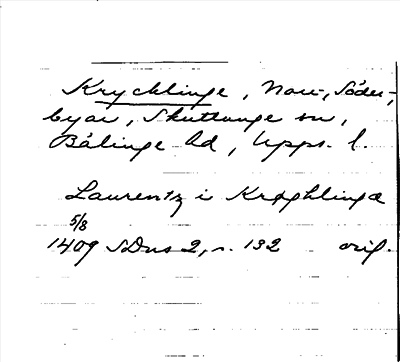 Krycklinge, Norr-, Söder-,
byar, Skuttunge sn,
Bälinge hd, Upps. l.
Laurentz i Krøghlinge
5/8
1409 SDns 2, s. 132 orig.